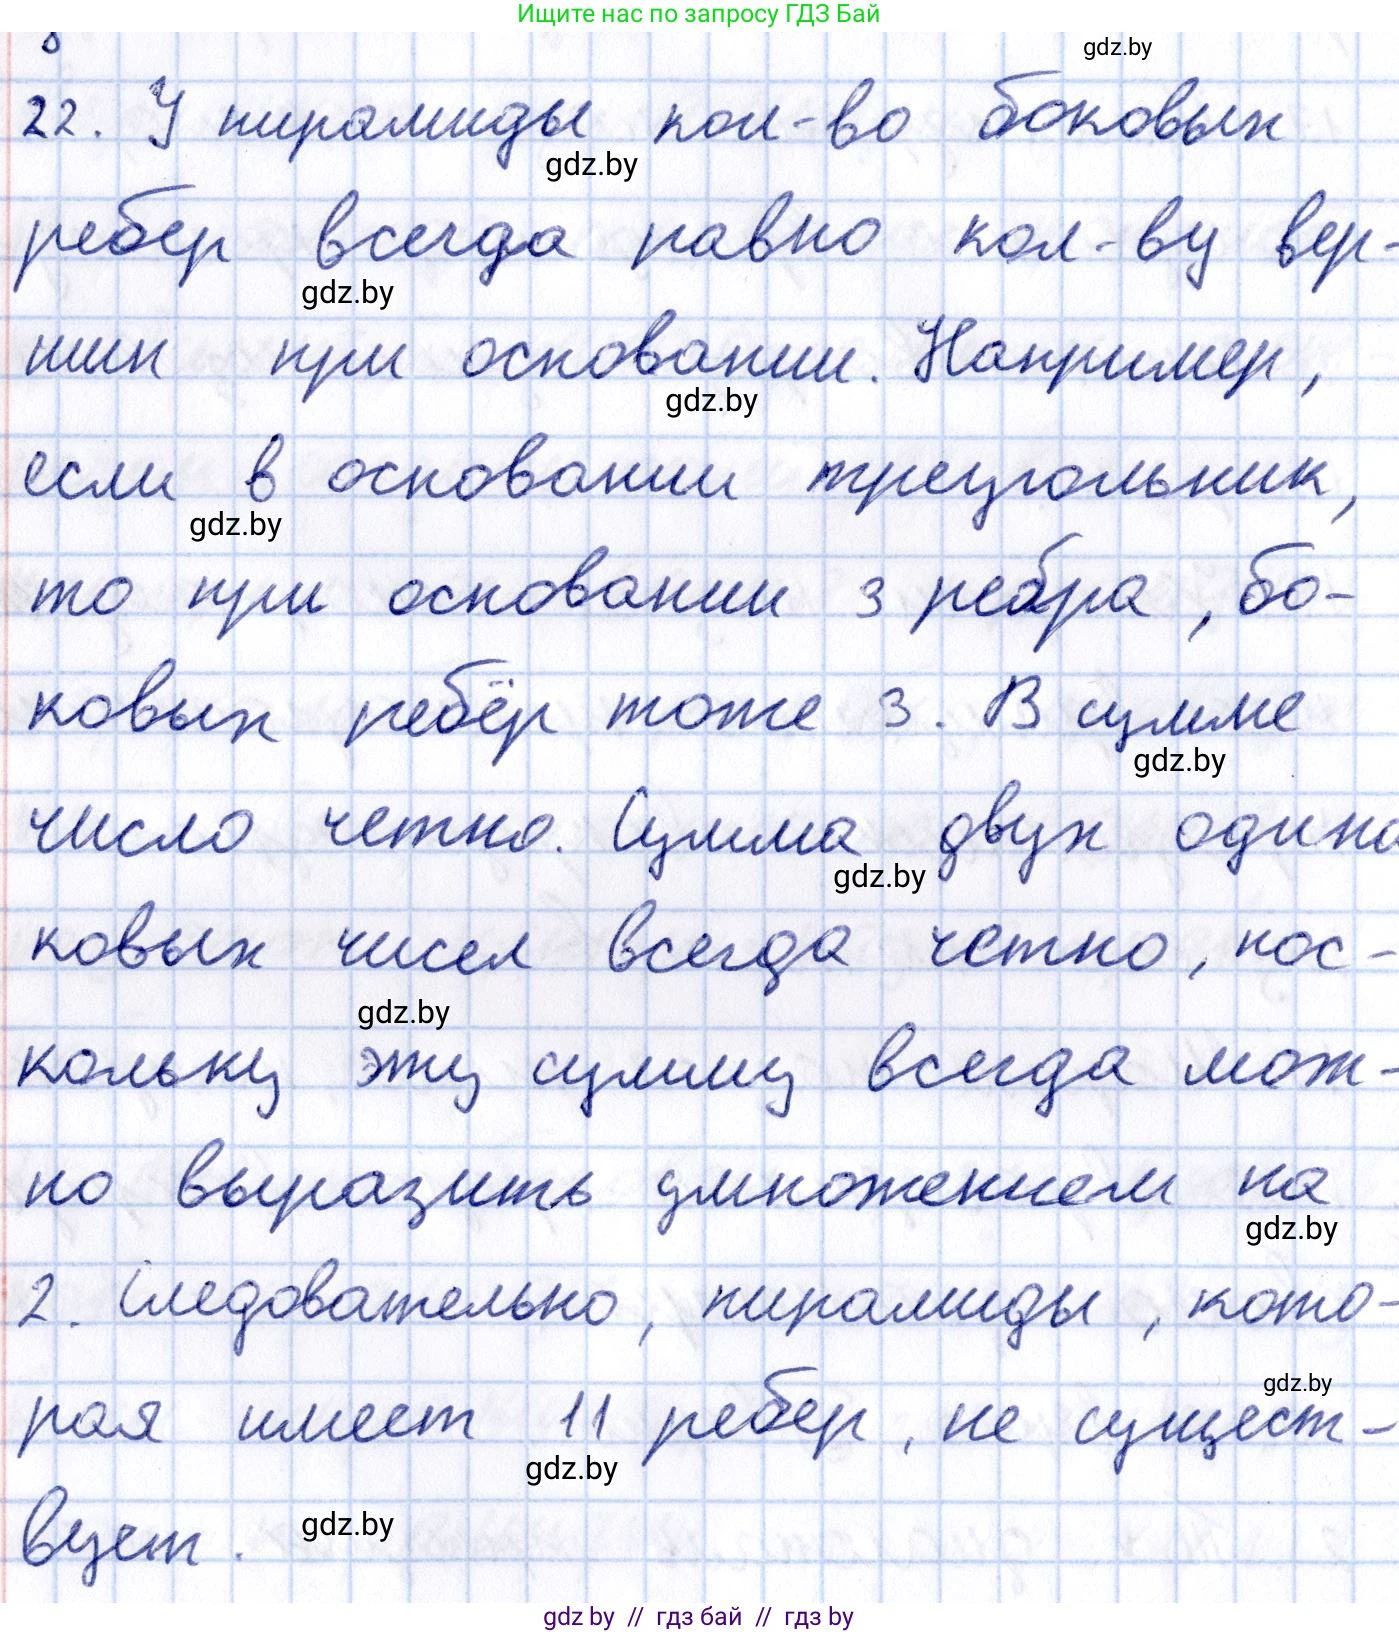 Ищите нас по запросу ГДЗ Бай
gdz.by
22. У пирамиды кол-во боковых
gdz.by
ребер всегда равно кол-ву вер-
gdz.by
шин при основании. Например,
gdz.by
если в основании треугольник,
gdz.by
то при основании 3 ребра, бо-
ковых ребёр тоже 3. В сумме
gdz.by
число четно. Сумма двух одина
gdz.by
ковых чисел всегда четно, пос-
gdz.by
кольку эту сумму всегда мож-
но выразить умножением на
gdz.by
2. Следовательно, пирамиды, кото-
gdz.by
рая имеет 11 ребер, не сущест-
gdz.by
вует.
gdz.by
gdz.by // гдз бай // гдз by